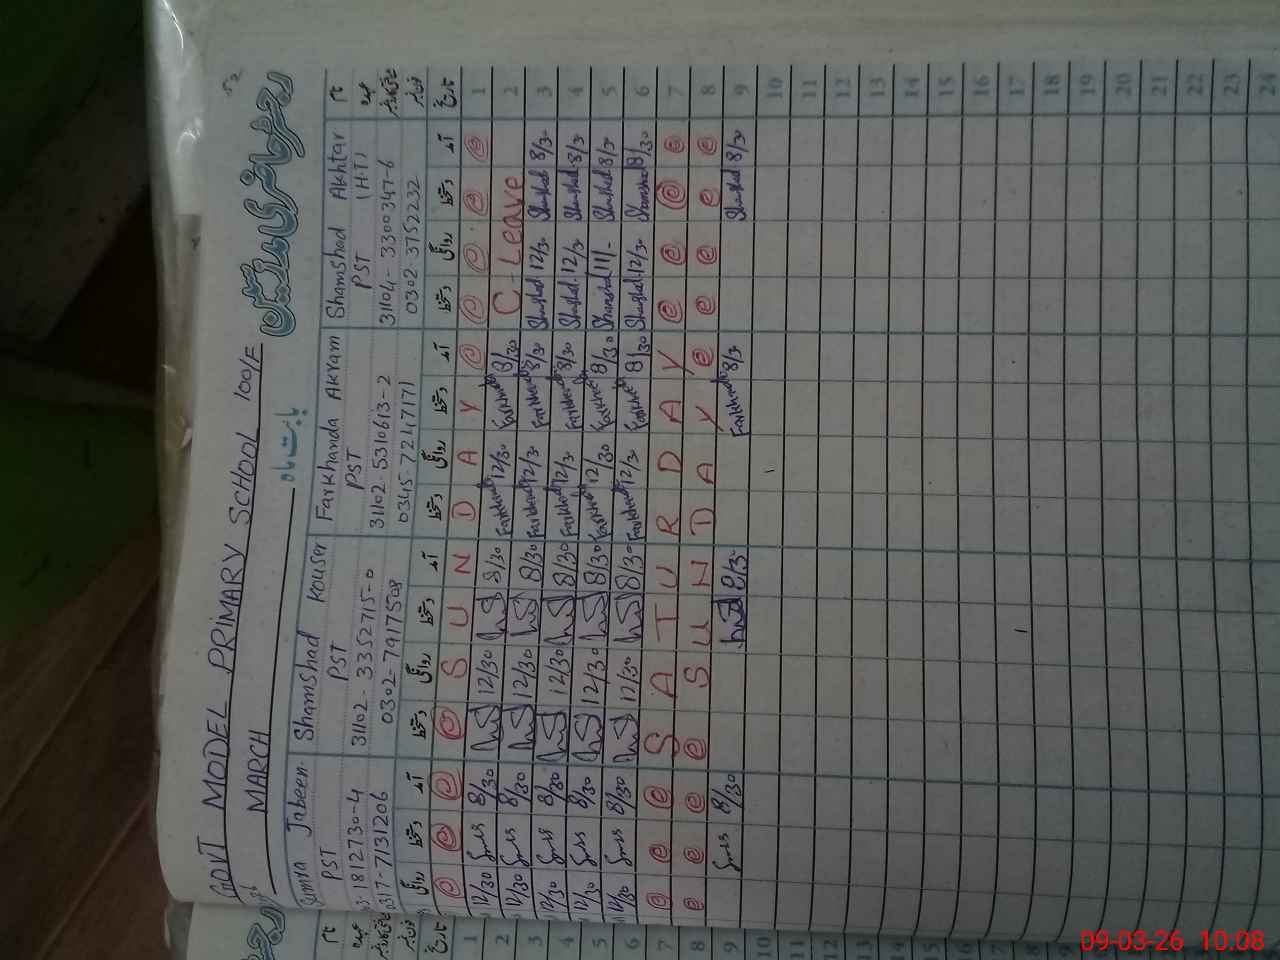 رجسٹر حاضری مدرسین
GOVT MODEL PRIMARY SCHOOL 100/F
MARCH بابت ماہ
نام Shamshad Akhtar Farkhanda Akram Shamshad Kouser Jabeen
عہدہ PST (H.T) PST PST PST
31104-3300347-6 31102-5310613-2 31102-3352715-0 1812730-4
0302-3752232 0345-7247171 0302-7917508 0317-7131206
تاریخ آمد دستخط روانگی دستخط آمد دستخط روانگی دستخط آمد دستخط روانگی دستخط آمد دستخط روانگی
1 SUNDAY
2 C-Leave 8/30 Farkhanda 12/30 Farkhanda 8/30 12/30 8/30 12/30
3 8/30 Shamshad 12/30 Shamshad 8/30 Farkhanda 12/30 Farkhanda 8/30 12/30 8/30 12/30
4 8/30 Shamshad 12/30 Shamshad 8/30 Farkhanda 12/30 Farkhanda 8/30 12/30 8/30 12/30
5 8/30 Shamshad 11/- Shamshad 8/30 Farkhanda 12/30 Farkhanda 8/30 12/30 8/30 12/30
6 8/30 Shamshad 12/30 Shamshad 8/30 Farkhanda 12/30 Farkhanda 8/30 12/30 8/30 12/30
7 SATURDAY
8 SUNDAY
9 8/30 Shamshad 8/30 Farkhanda 8/30 8/30
10
11
12
13
14
15
16
17
18
19
20
21
22
23
24
نام
تاریخ
1
2
3
4
5
6
7
8
9
10
11
12
13
14
15
16
17
18
19
20
21
22
23
09-03-26 10:08